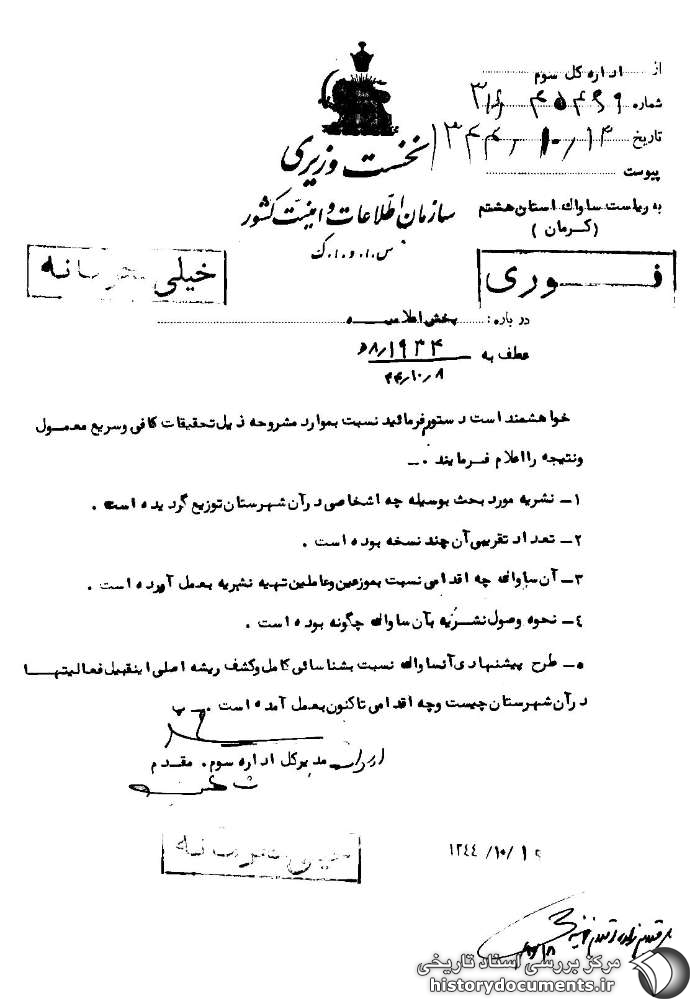 از اداره کل سوم
شماره ۳۱۶/۴۵۴۶۹
تاریخ ۱۳۴۴/۱۰/۱۴
پیوست
نخست وزیری
سازمان اطلاعات و امنیت کشور
س.ا.و.ا.ک
به ریاست ساواک استان هشتم
(کرمان)
فوری
خیلی محرمانه
درباره: پخش اعلامیه
عطف به ۸/۱۹۳۴
۴۴/۱۰/۸
خواهشمند است دستور فرمائید نسبت بموارد مشروحه ذیل تحقیقات کافی وسریع معمول
ونتیجه را اعلام فرمایند .ـ
۱ـ نشریه مورد بحث بوسیله چه اشخاصی درآن شهرستان توزیع گردیده است .
۲ـ تعداد تقریبی آن چند نسخه بوده است .
۳ـ آن ساواک چه اقدامی نسبت بموزعین وعاملین تهیه نشریه بعمل آورده است .
٤ـ نحوه وصول نشریه بآن ساواک چگونه بوده است .
٥ـ طرح پیشنهادی آنساواک نسبت بشناسائی کامل وکشف ریشه اصلی اینقبیل فعالیتها
درآن شهرستان چیست وچه اقدامی تاکنون بعمل آمده است .ـ پ
مدیرکل اداره سوم . مقدم
خیلی محرمانه
۱۳٤٤/۱۰/۱۹
مرکز بررسی اسناد تاریخی
historydocuments.ir